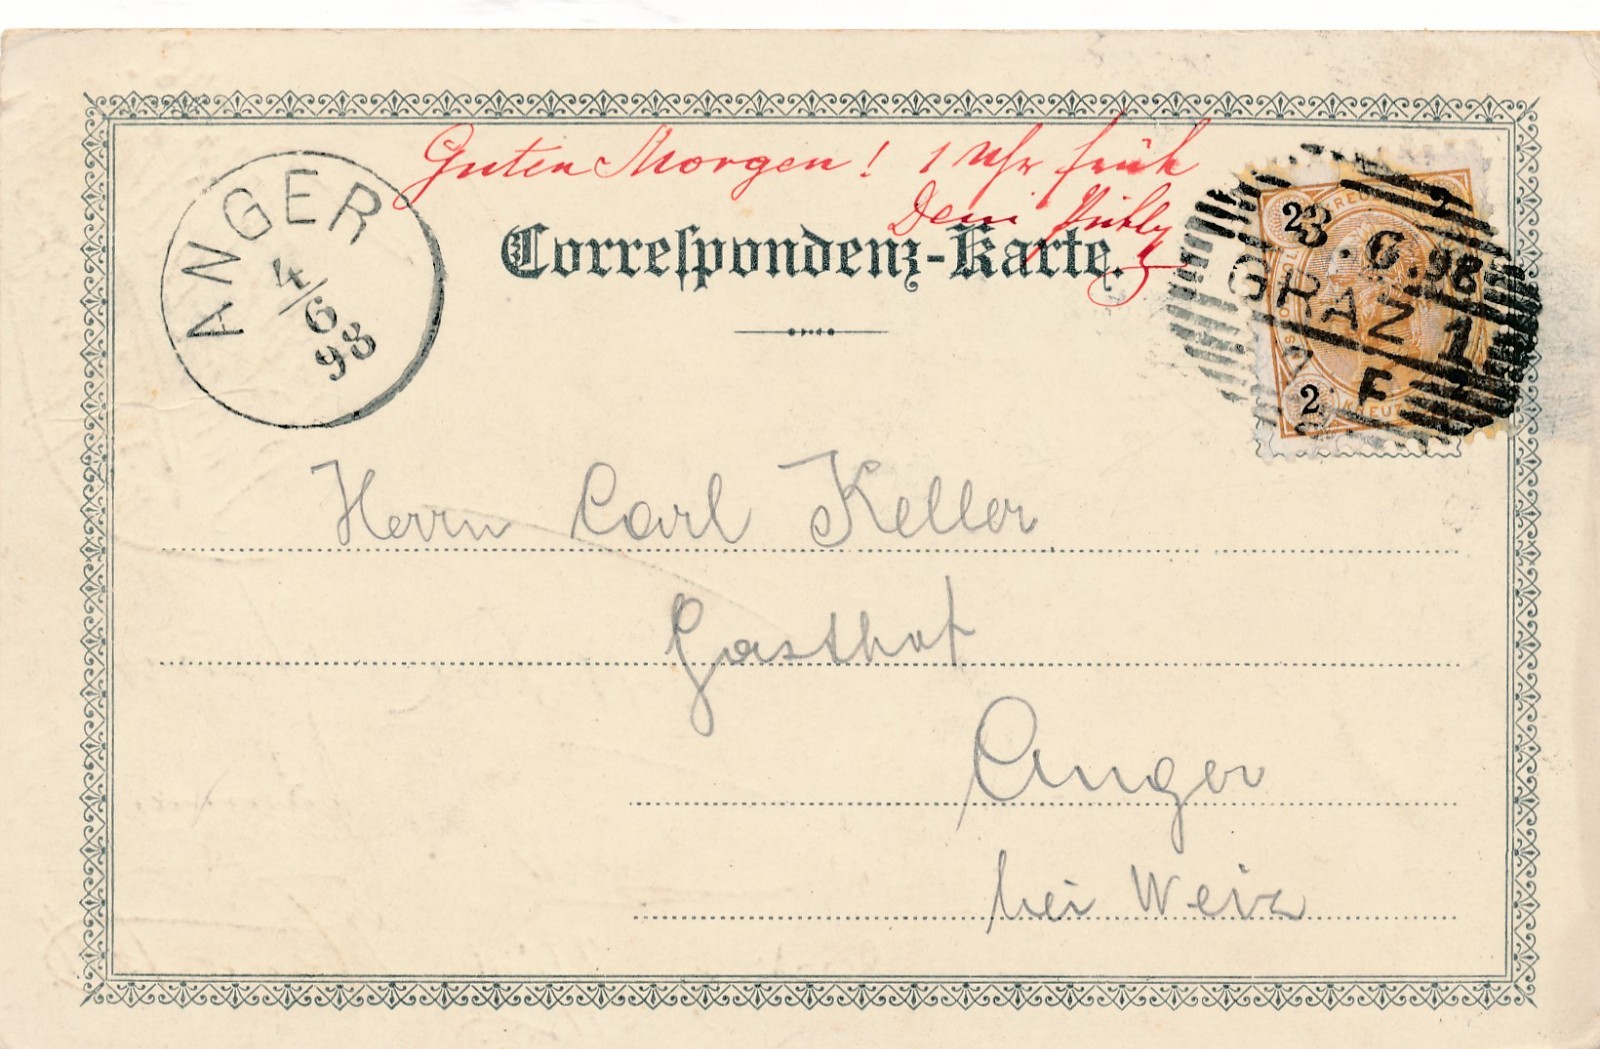 Guten Morgen! 1 Uhr früh
Dein
Correspondenz-Karte.
ANGER
4/6
98
2 KREU
3.6.98
GRAZ 1
F
2 KREU
Herrn Carl Keller
Gasthof
Anger
bei Weiz